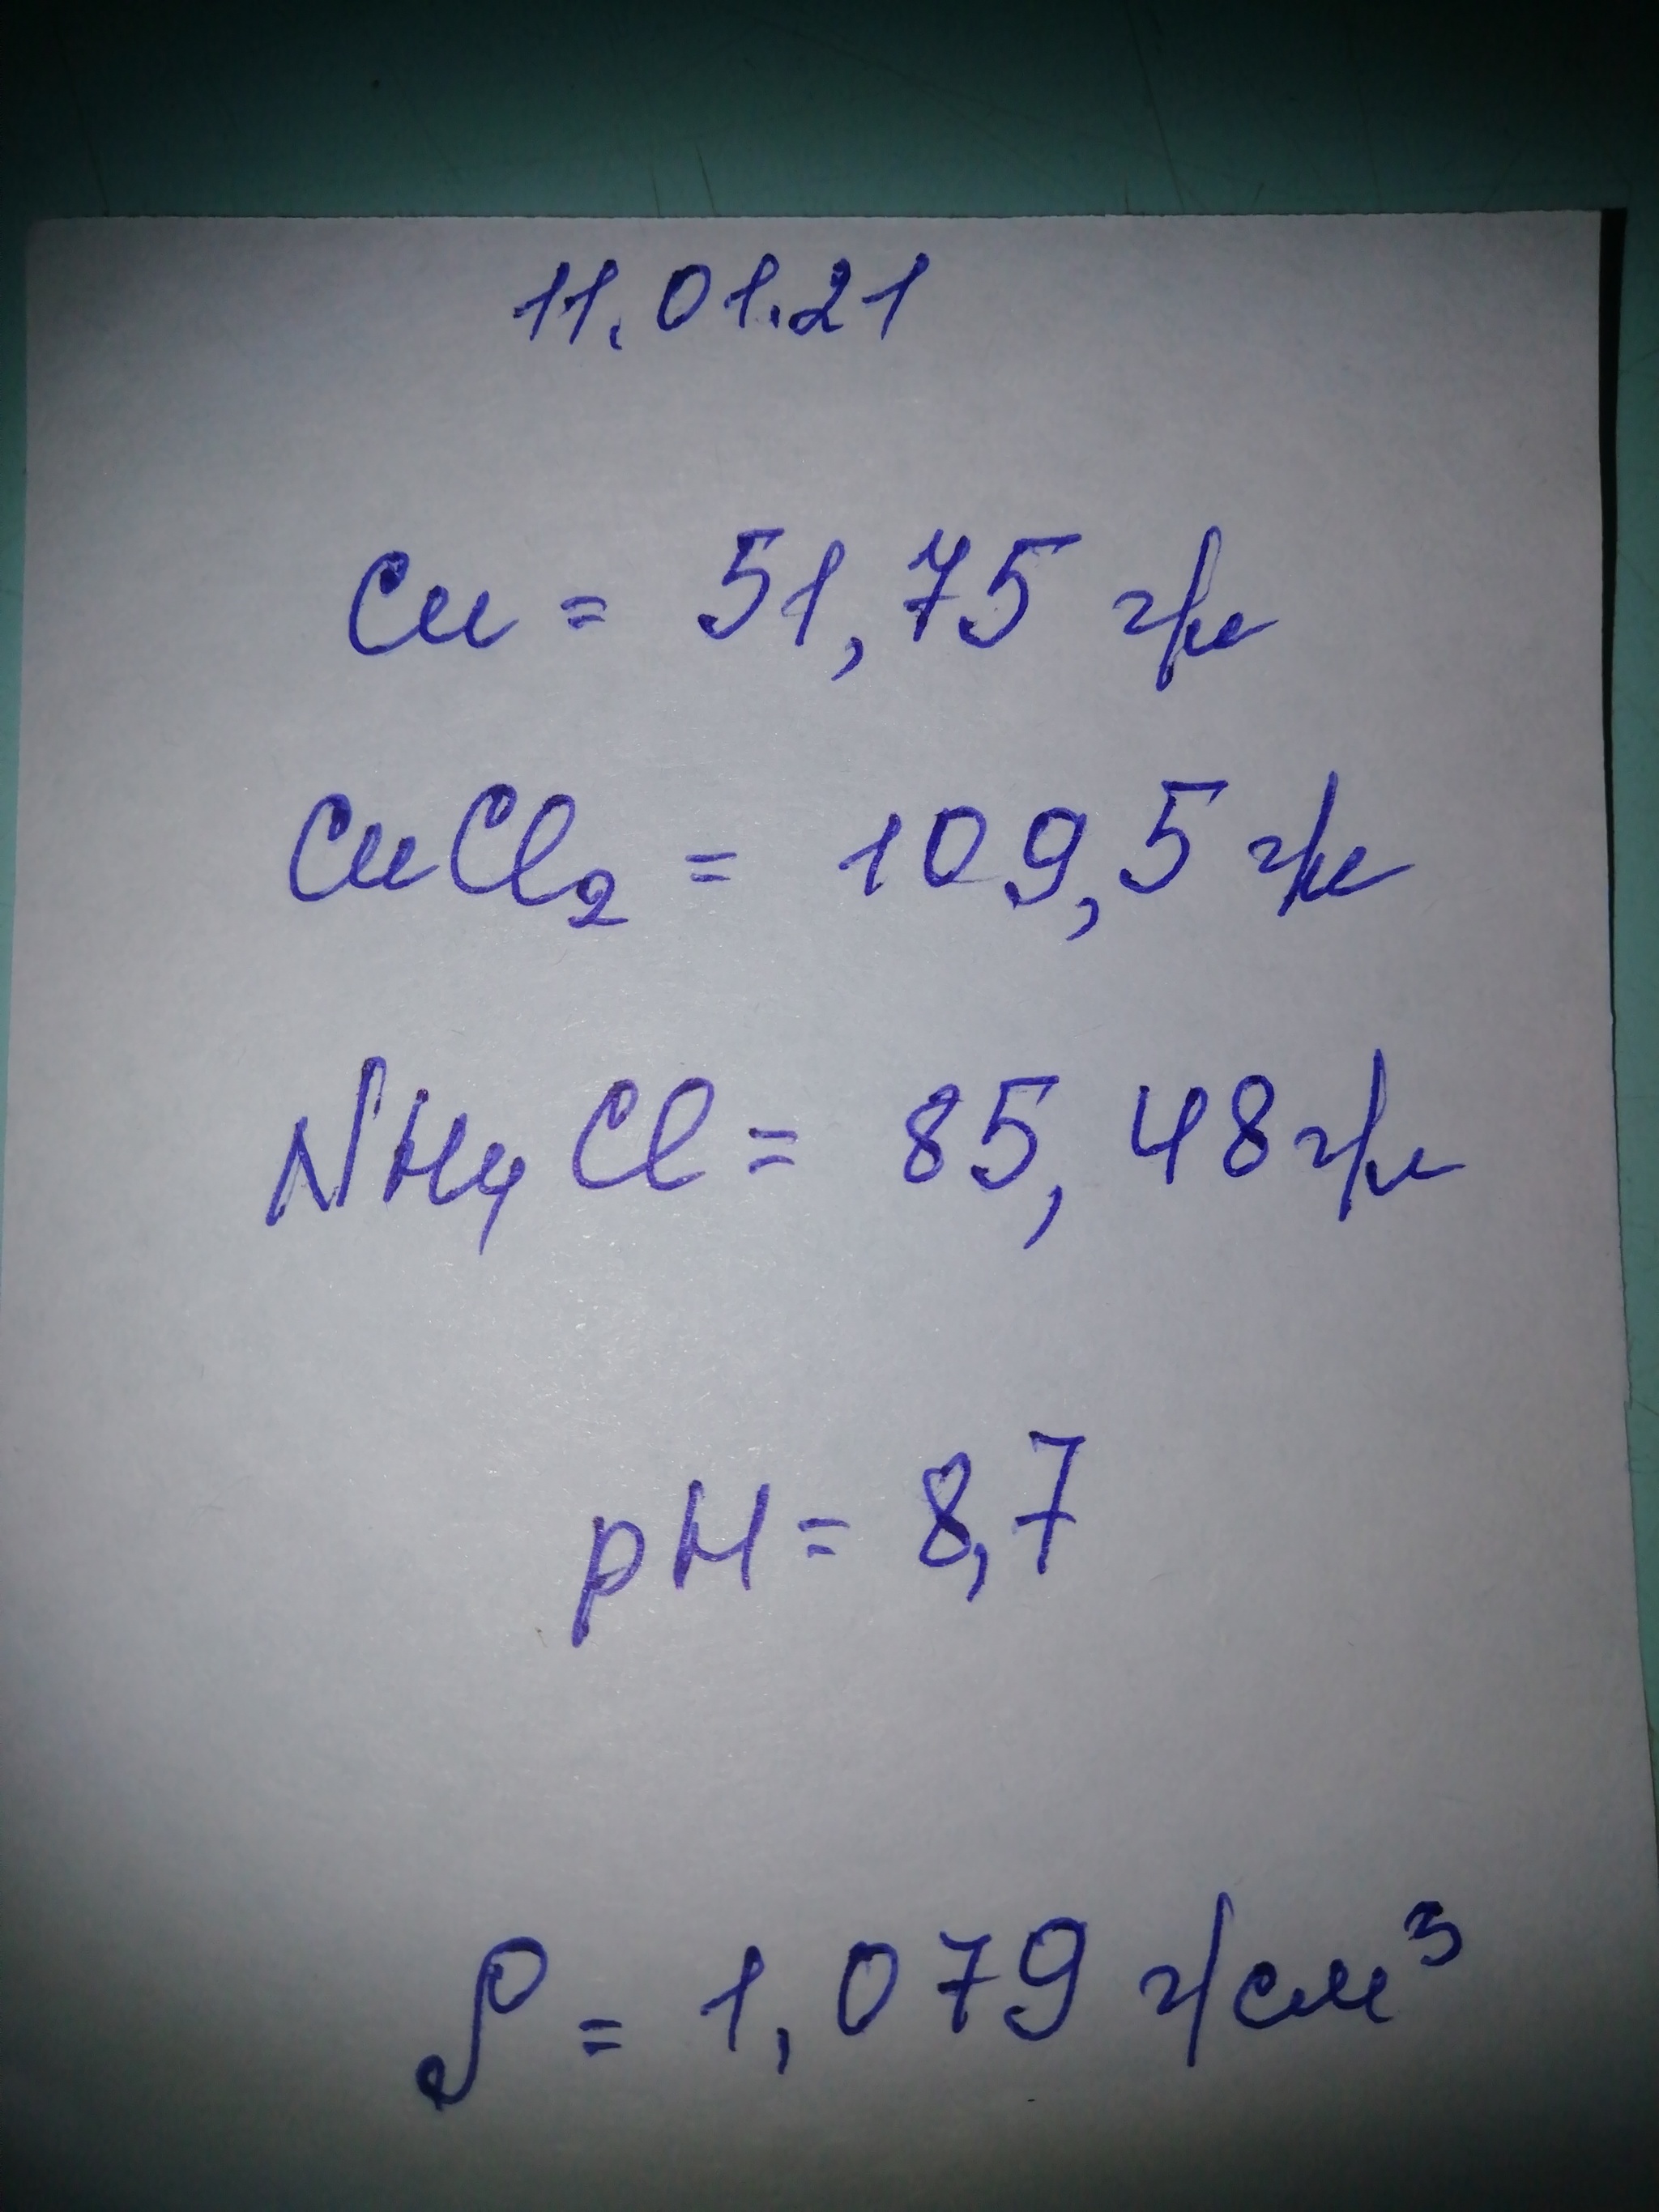 11.01.21
Cu = 51,75 г/л
CuCl₂ = 109,5 г/л
NH₄Cl = 85,48 г/л
pH = 8,7
ρ = 1,079 г/см³